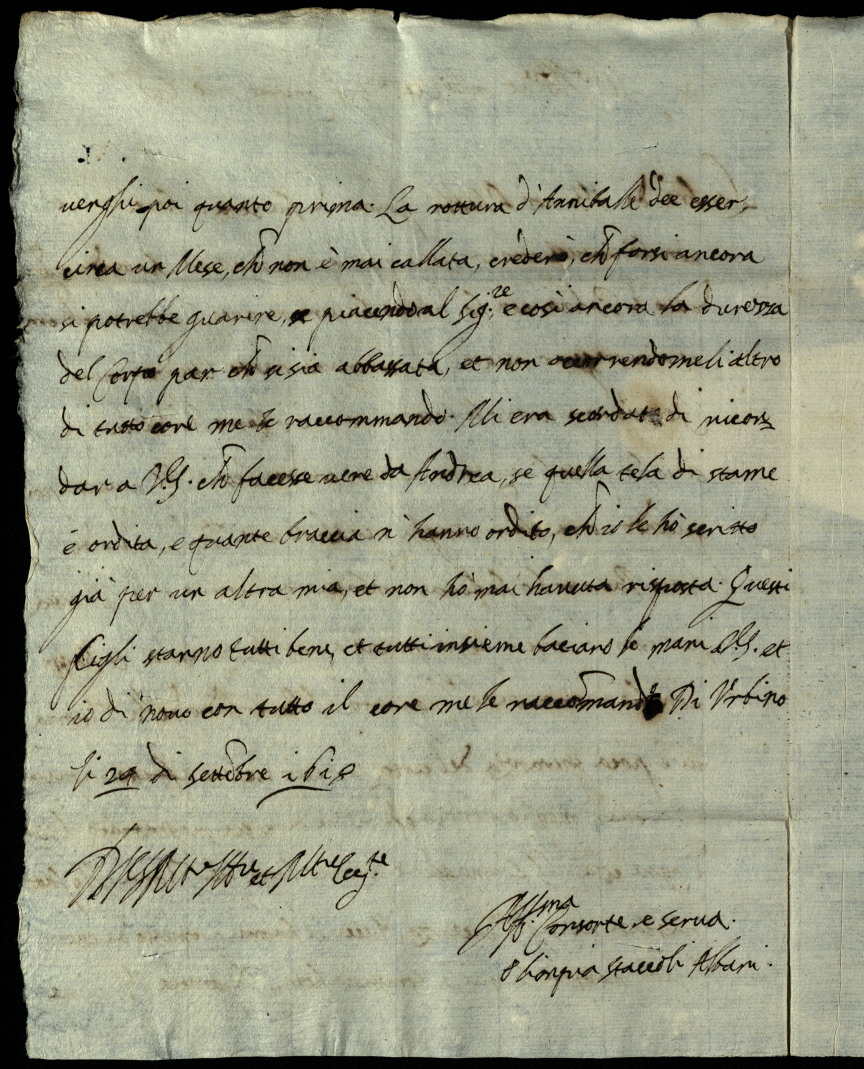 venghi poi quanto prima. La rottura d'Anniballe dee esser,
circa un Mese, ch̃ non è mai callata, crederò, ch̃ forsi ancora
si potrebbe guarire, se piacendo al Sig.re e così ancora la durezza
del Corpo par ch̃ si sia abbassata, et non occorrendomeli altro
di tutto core me le raccommando. Mi era scordata di ricor=
dar a V.S. ch̃ facesse vere da Andrea, se quella tela di stame
è ordita, e quante braccia n' hanno ordito, ch̃ io le hò scritto
già per un altra mia, et non hò mai havuta risposta. Questi
figli stanno tutti bene, et tutti insieme baciano le mani à V.S. et
io di novo con tutto il core me le raccom̃ando Di Urbino
li 29 di settẽbre 1618
Di V.S. Molto Ill.re et Molto Ecc.te
Aff.ma Consorte, e serva.
Olimpia Staccoli Albani.